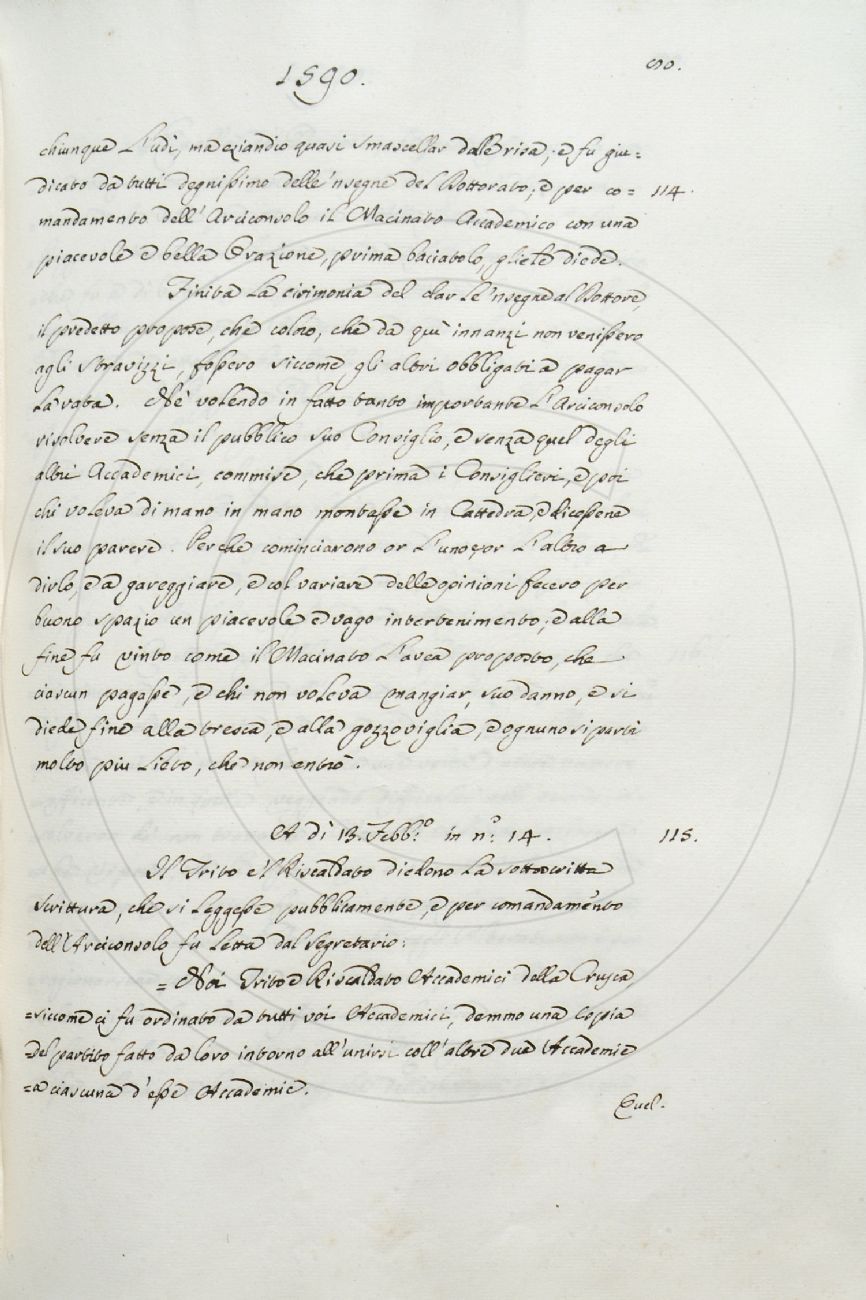 1590.
90.
chiunque l'udì, ma eziandio quasi smascellar dalle risa; e fu giu=
dicato da tutti degnissimo delle 'nsegne del Dottorato; e per co= 114.
mandamento dell'Arciconsolo il Macinato Accademico con una
piacevole e bella Orazione, prima baciatolo, gliele diede.
Finita la cirimonia del dar le 'nsegne al Dottore,
il predetto propose, che coloro, che da quì innanzi non venissero
agli stravizzi, fossero siccome gli altri obbligati a pagar
la rata. Nè volendo in fatto tanto importante l'Arciconsolo
risolvere senza il pubblico suo Consiglio, e senza quel degli
altri Accademici, commise, che prima i Consiglieri, e poi
chi voleva di mano in mano montasse in Cattedra, e dicessene
il suo parere. Perchè cominciarono or l'uno, or l'altro a
dirlo, e a gareggiare, e col variare delle opinioni fecero per
buono spazio un piacevole e vago intertenimento; e alla
fine fu vinto come il Macinato l'avea proposto, che
ciascun pagasse, e chi non voleva mangiar, suo danno, e si
diede fine alla tresca, e alla gozzoviglia, e ognuno si partì
molto più lieto, che non entrò.
A dì 13. Febb.º in n.º 14. 115.
Il Trito e 'l Riscaldato diedono la sottoscritta
scrittura, che si leggesse pubblicamente, e per comandamento
dell'Arciconsolo fu letta dal Segretario:
= Noi Trito e Riscaldato Accademici della Crusca
=siccome ci fu ordinato da tutti voi Accademici, demmo una copia
=del partito fatto da loro intorno all'unirsi coll'altre due Accademie
=a ciascuna d'esse Accademie.
Quel.